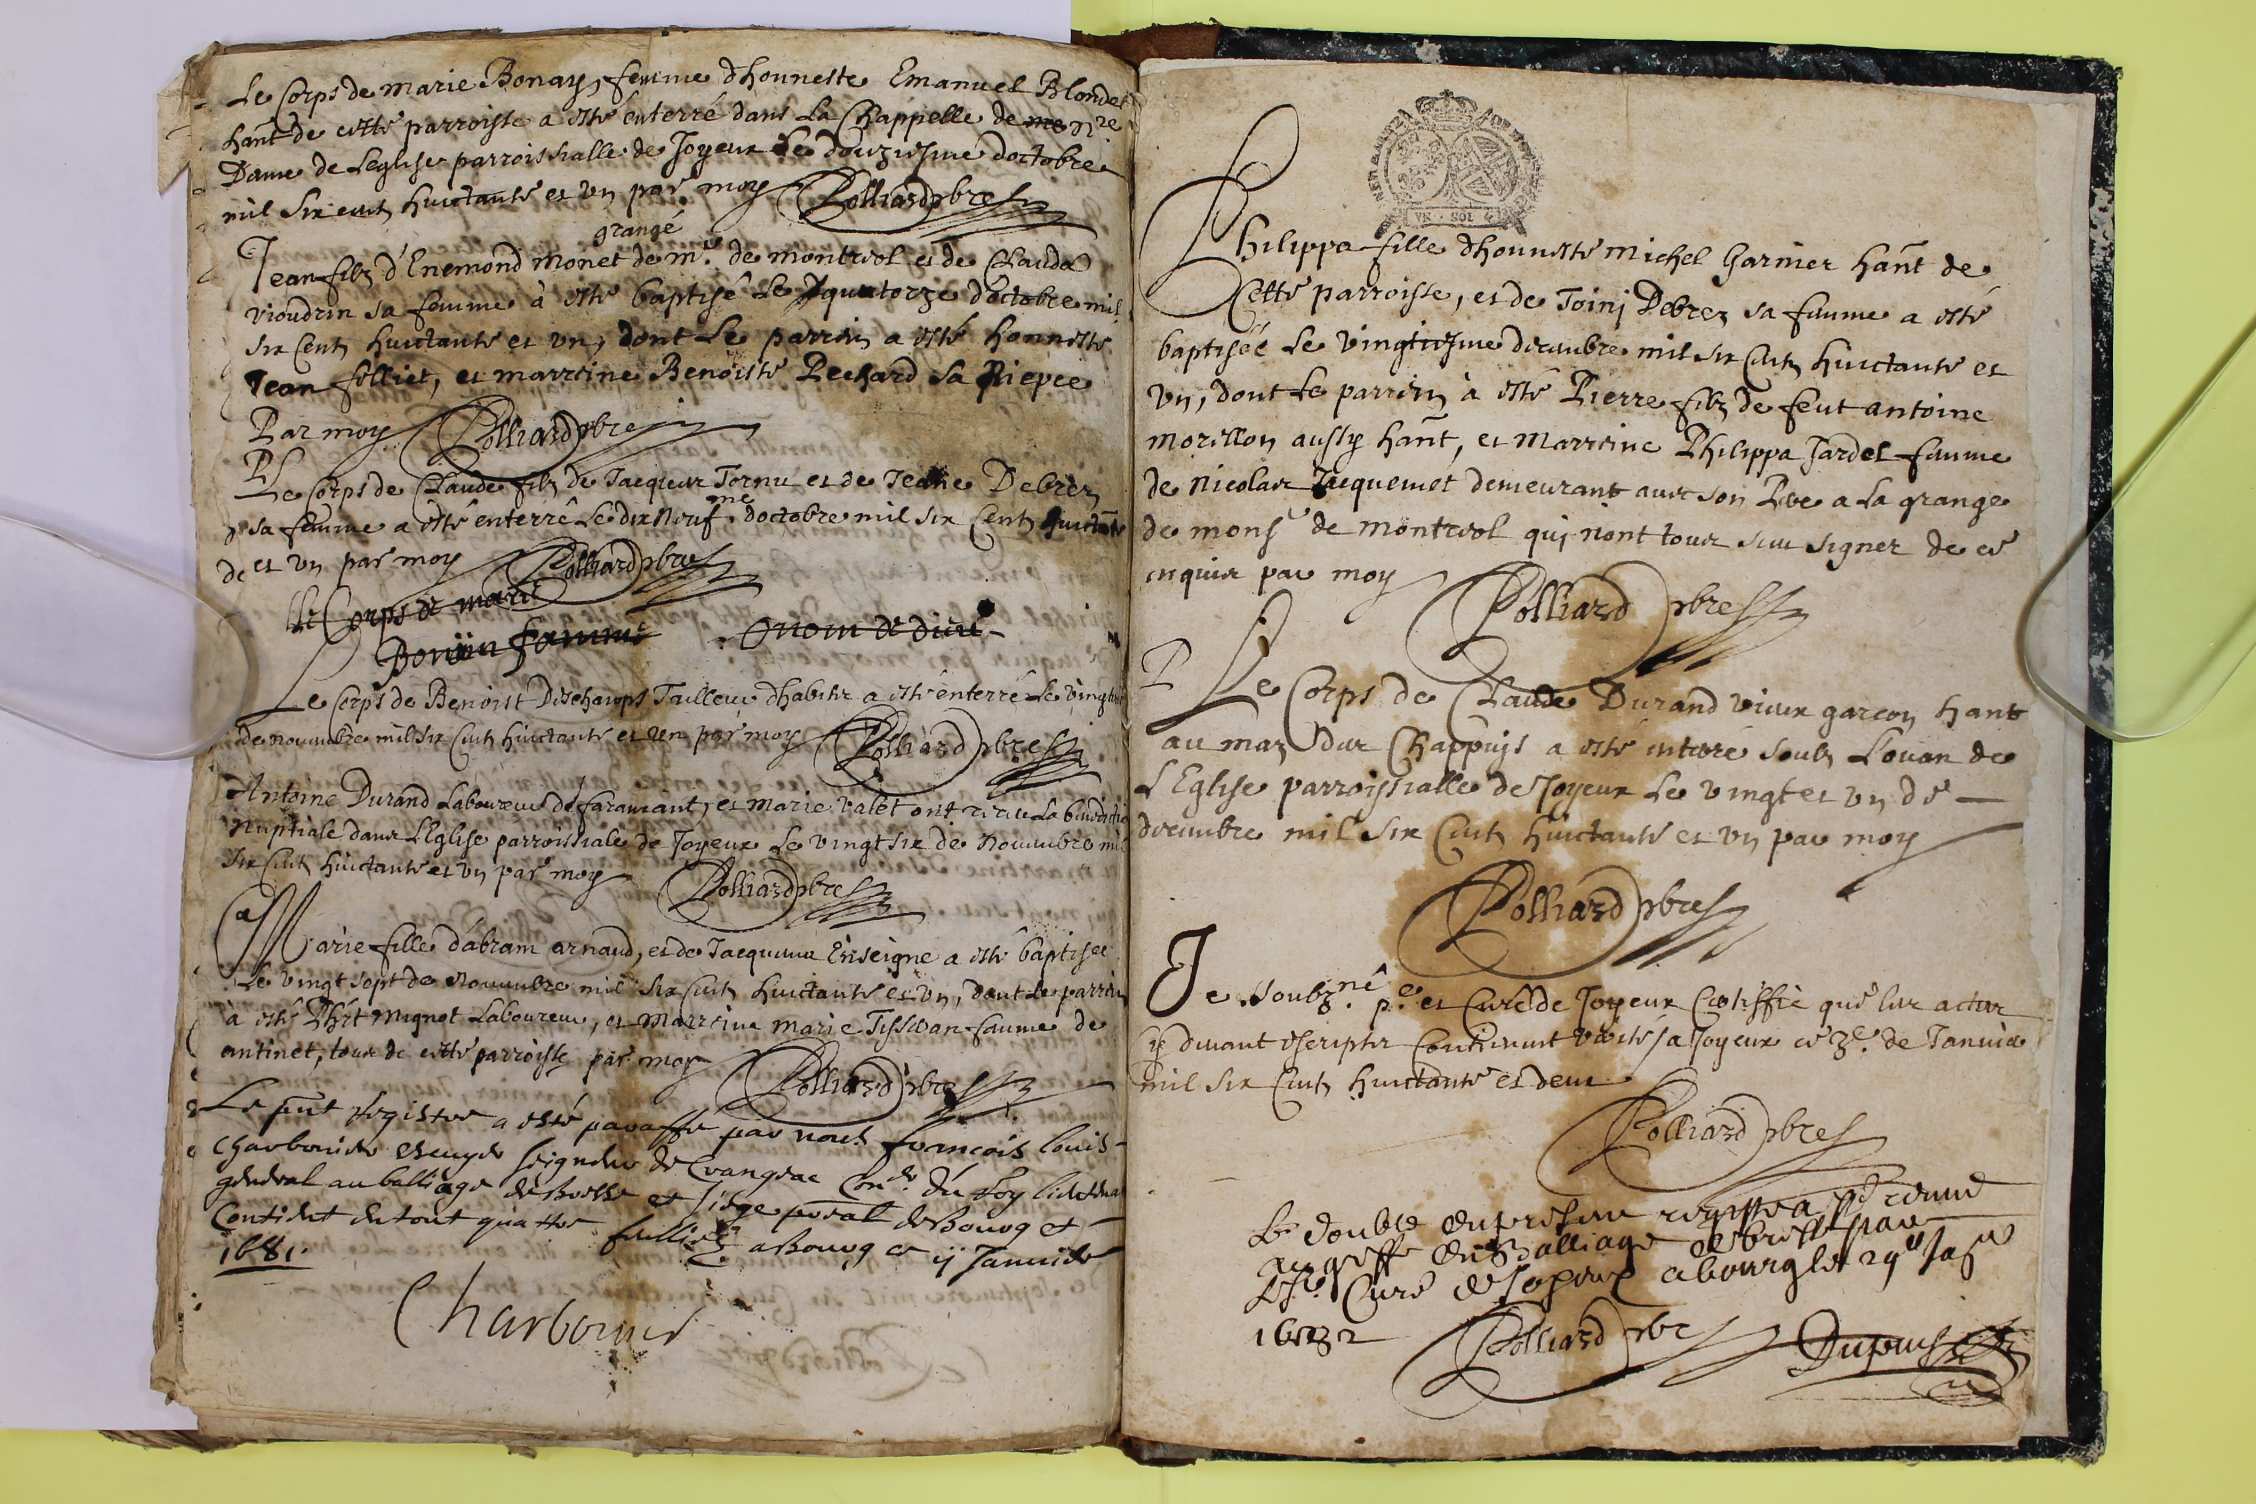 Le Corps de marie Bonay, femme dhonneste Emanuel Blondel
hant de cette parroisse a esté enterré dans La Chappelle de me nre
Dame de Leglise parroissialle de Joyeux Le douziesme doctobre
mil six cent huictante et un par moy Polliard pbre
grange
Jean filz d'Enemond monet de mr. de montreol et de Clauda
vioudrin sa femme à esté baptisé Le quatorze d'octobre mil
six Cent huictante et un, dont Le parrin a esté honneste
Jean folliet, et marreine Benoiste Pechard sa Niepce
Par moy Polliard pbre
Le Corps de Claude filz de Jacques Tornu et de Jeane Debrez
sa femme a esté enterré Le dix neufme doctobre mil six Cent huictante
et un par moy Polliard pbre
Le Corps de marie
Bonin famme Onom de dieu
Le Corps de Benoist Deschamps Tailleur dhabitz a esté enterré Le vingt
de nouembre mil six Cent huictante et un par moy Polliard pbre
Antoine Durand Laboureur de faramant, et marie valet ont receu La benediction
Nuptiale dans L'Eglise parroissiale de Joyeux Le vingt six de Nouembre mil
six Cent huictante et un par moy Polliard pbre
Marie fille d'abram arnaud, et de Jacquema Enseigne a esté baptisee
Le vingt sept de Nouembre mil six Cent huictante et un, dont Le parrin
à esté Phet mignot Laboureur, et Marreine marie Tisseran famme de
antinet, tous de cette parroisse par moy Polliard pbre
Le pnt registre a esté paraffé par nous francois louis
Charbonier escuyer seigneur de Crangeac Coner. du Roy lieutenant
general au balliage de Bresse et siege preal de Bourg et
Contient en tout quattre feulliez a Bourg ce ij Januier
1681.
Charbonier
VN SOL 4
Philippa fille dhonneste michel Garnier hant de
Cette parroisse, et de Toini Debrez sa femme a esté
baptiséé Le vingtiesme decembre mil six Cent huictante et
un, dont Le parrin à esté Pierre filz de feut antoine
morellon aussy hant, et Marreine Philippa Jardet femme
de Nicolas Jacquemet demeurant auec son Pere a La grange
de monsr de montreol qui n'ont tous sceu signer de ce
enquis par moy Polliard pbre
Le Corps de Claude Durand vieux garcon hant
au mas dus Chappuys a esté enterre soubz L'ouan de
L'Eglise parroissialle de Joyeux Le vingt et un de
decembre mil six Cent huictante et un par moy
Polliard pbre
Je soubzné. pe. et Curé de Joyeux Certiffie que les actes
cy deuant escriptes Contiennent verité / a Joyeux ce 3e. de Januier
mil six Cent huictante et deux
Polliard pbre
Le double du present registre a esté remis
au greffe du Balliage de bresse par
Le Sr. Curé de Joyeux a bourg le 29e Jan
1682
Polliard pbre Dupuis